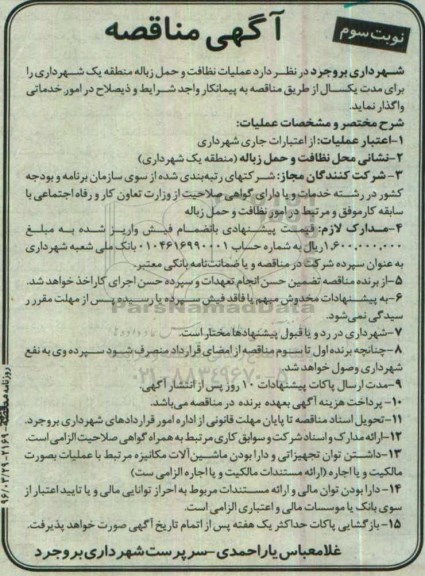 آگهی مناقصه
نوبت سوم
شهرداری بروجرد در نظر دارد عملیات نظافت و حمل زباله منطقه یک شهرداری را
برای مدت یکسال از طریق مناقصه به پیمانکار واجد شرایط و ذیصلاح در امور خدماتی
واگذار نماید.
شرح مختصر و مشخصات عملیات:
۱-اعتبار عملیات: از اعتبارات جاری شهرداری
۲-نشانی محل نظافت و حمل زباله (منطقه یک شهرداری)
۳-شرکت کنندگان مجاز: شرکتهای رتبه‌بندی شده از سوی سازمان برنامه و بودجه
کشور در رشته خدمات و یا دارای گواهی صلاحیت از وزارت تعاون کار و رفاه اجتماعی با
سابقه کار موفق و مرتبط در امور نظافت و حمل زباله
۴-مدارک لازم: قیمت پیشنهادی بانضمام فیش واریز شده به مبلغ
۱،۶۰۰،۰۰۰،۰۰۰ ریال به شماره حساب ۰۱۰۴۶۱۶۹۹۰۰۰۱ بانک ملی شعبه شهرداری
به عنوان سپرده شرکت در مناقصه و یا ضمانت‌نامه بانکی معتبر.
۵-از برنده مناقصه تضمین حسن انجام تعهدات و سپرده حسن اجرای کار اخذ خواهد شد.
۶-به پیشنهادات مخدوش مبهم یا فاقد فیش سپرده یا رسیده پس از مهلت مقرر ر
سیدگی نمی‌شود.
۷-شهرداری در رد و یا قبول پیشنهادها مختار است.
۸-چنانچه برنده اول تا سوم مناقصه از امضای قرارداد منصرف شود سپرده وی به نفع
شهرداری وصول خواهد شد.
۹-مدت ارسال پاکات پیشنهادات ۱۰ روز پس از انتشار آگهی.
۱۰- پرداخت هزینه آگهی بعهده برنده در مناقصه می‌باشد.
۱۱-تحویل اسناد مناقصه تا پایان مهلت قانونی از اداره امور قراردادهای شهرداری بروجرد.
۱۲-ارائه مدارک و اسناد شرکت و سوابق کاری مرتبط به همراه گواهی صلاحیت الزامی است.
۱۳-داشتن توان تجهیزاتی و دارا بودن ماشین آلات مکانیزه مرتبط با عملیات بصورت
مالکیت و یا اجاره (ارائه مستندات مالکیت و یا اجاره الزامی ست)
۱۴- دارا بودن توان مالی و ارائه مستندات مربوط به احراز توانایی مالی و یا تایید اعتبار از
سوی بانک یا موسسات مالی و اعتباری الزامی است.
۱۵- بازگشایی پاکات حداکثر یک هفته پس از اتمام تاریخ آگهی صورت خواهد پذیرفت.
غلامعباس یاراحمدی-سرپرست شهرداری بروجرد
ParsNamadData
۰۲۱-۸۸۳۴۹۶۷۰
روزنامه مناقصه ۲۱۶۹-۹۶/۰۳/۲۹